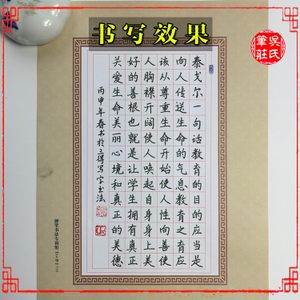 书写效果
吳氏
筆莊
泰戈尔一句话教育的目的应当是
向人传送生命的气息教育之育应
该从尊重生命开始使人性向善使
人胸襟开阔使人唤起自身身上美
好的善根也就是让学生拥有真正
关爱生命美丽心境和真正的美德
丙申年春书於三得写字书法